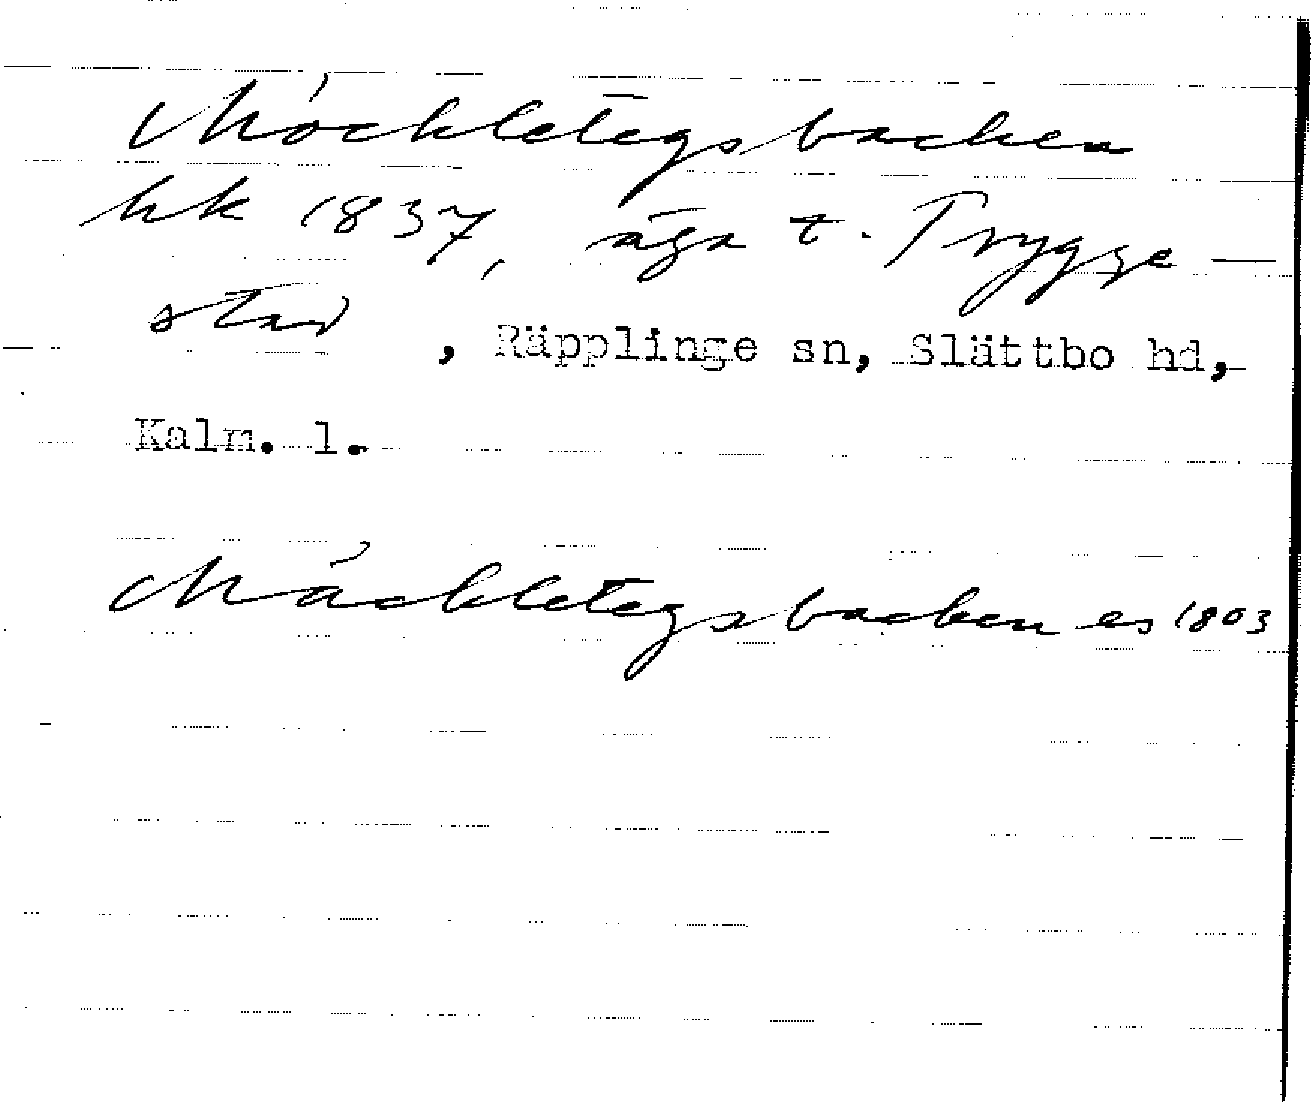 Möckletegsbacken
hk 1837, äga t. Trygge-
stad, Räpplinge sn, Slättbo hd,
Kalm. l.
Mäckletegsbacken es 1803